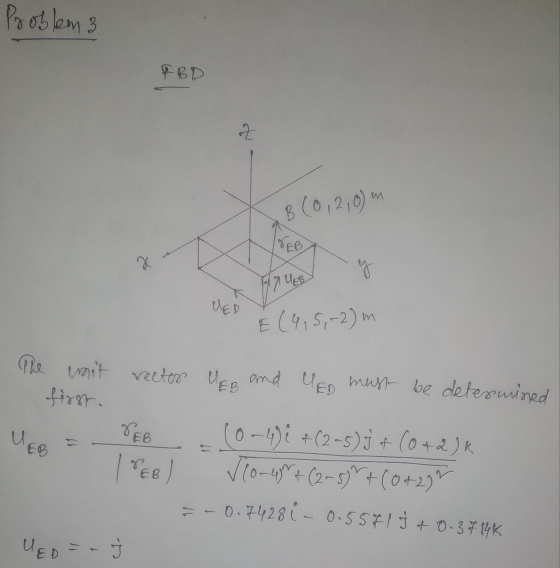 Problem 3
FBD
z
B (0,2,0) m
r_EB
x
y
u_EB
u_ED
E (4,5,-2) m
The unit vector u_EB and u_ED must be determined
first.
u_EB = r_EB / |r_EB| = (0-4)i + (2-5)j + (0+2)k / √((0-4)² + (2-5)² + (0+2)²)
= - 0.7428i - 0.5571j + 0.3714k
u_ED = - j